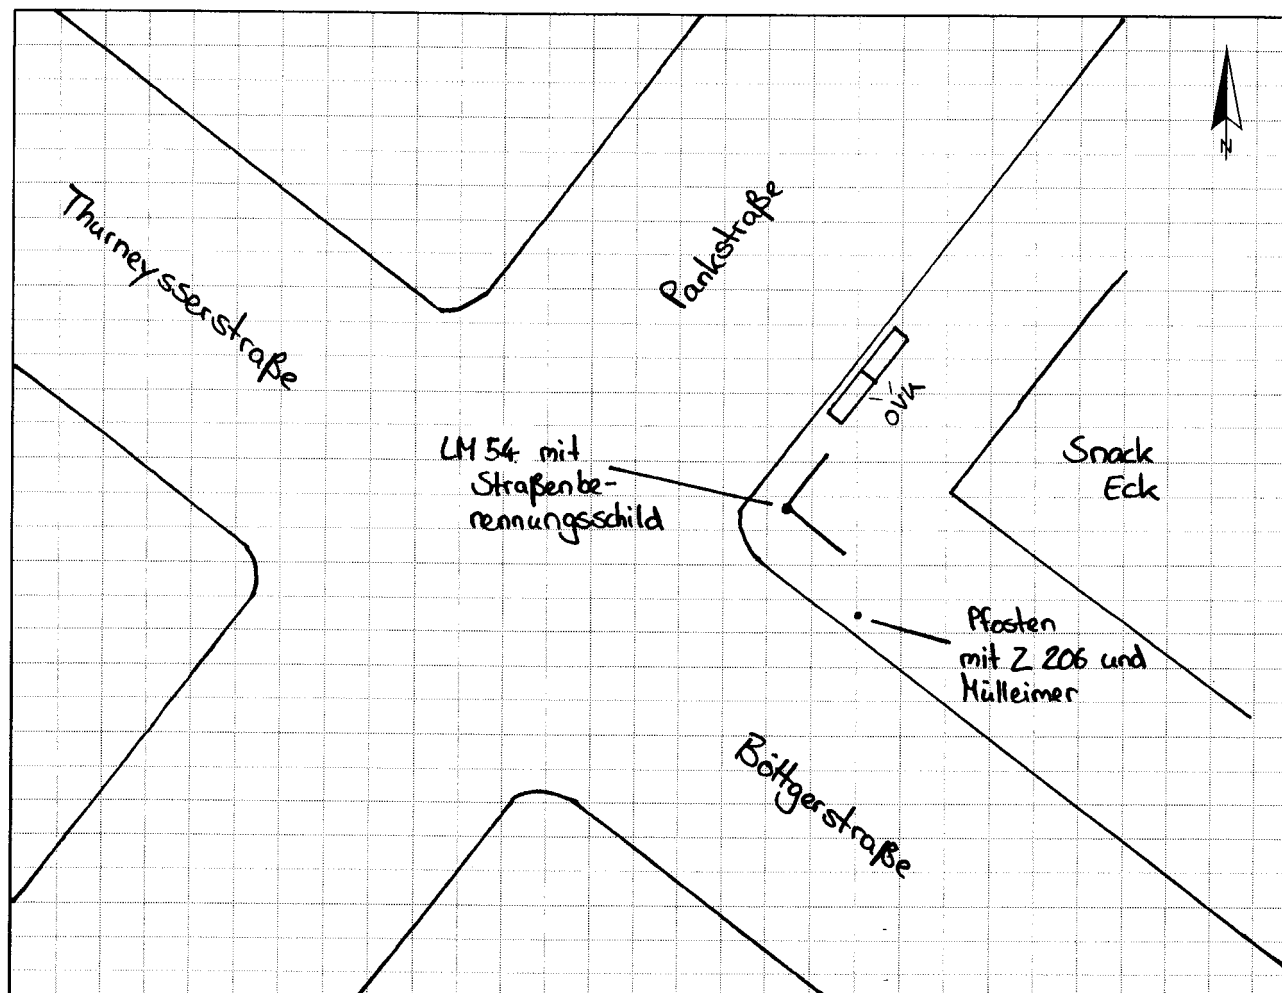 N
Thurneysserstraße
Pankstraße
ÖVK
LM 54 mit
Straßenbe-
nennungsschild
Snack
Eck
Pfosten
mit Z 206 und
Mülleimer
Böttgerstraße